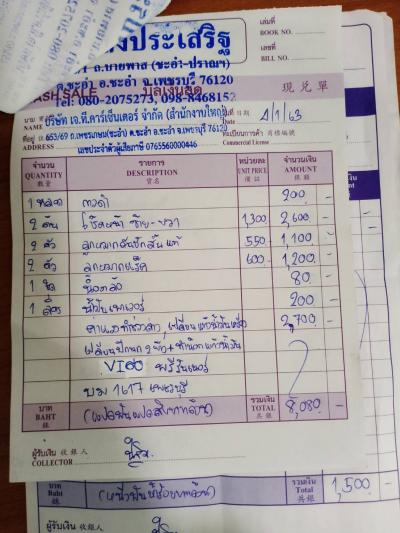 งประเสริฐ
ถ.บายพาส (ชะอำ-ปราณฯ)
ต.ชะอำ อ.ชะอำ จ.เพชรบุรี 76120
Tel: 080-2075273, 098-8468152
เล่มที่
BOOK NO.
เลขที่
BILL NO.
CASH SALE บิลเงินสด 現兑單
นาม
NAME
บริษัท เอ.ที.คาร์เซ็นเตอร์ จำกัด (สำนักงานใหญ่)
วันที่ 4/1/63
ที่อยู่
ADDRESS
653/69 ถ.เพชรเกษม(ชะอำ) ต.ชะอำ อ.ชะอำ จ.เพชรบุรี 76120
เลขประจำตัวผู้เสียภาษี 0765560000446
ทะเบียนการค้า 商標編號
Commercial License
จำนวน รายการ หน่วยละ จำนวนเงิน
QUANTITY DESCRIPTION UNIT PRICE AMOUNT
數量 貨名 備註 銀額
1 200 -
2 ต้น โช๊คหน้า ซ้าย-ขวา 1,300 2,600 -
2 ตัว ลูกหมากคันชักสั้น แท้ 550 1,100 -
2 ตัว ลูกหมากแร็ค 600 1,200 -
1 80 -
1 ลิตร น้ำมันเพาเวอร์ 200 -
2,700 -
VIGO พรีรันเนอร์
บม 1617 เพชรบุรี
บาท
BAHT
銖
(แปดพันแปดสิบบาทถ้วน)
รวมเงิน
TOTAL
共銀
8,080 -
ผู้รับเงิน 收銀人
COLLECTOR
บาท
Baht
銖
(หนึ่งพันห้าร้อยบาทถ้วน)
รวมเงิน
Total
共銀
1,500 -
ผู้รับเงิน 收銀人